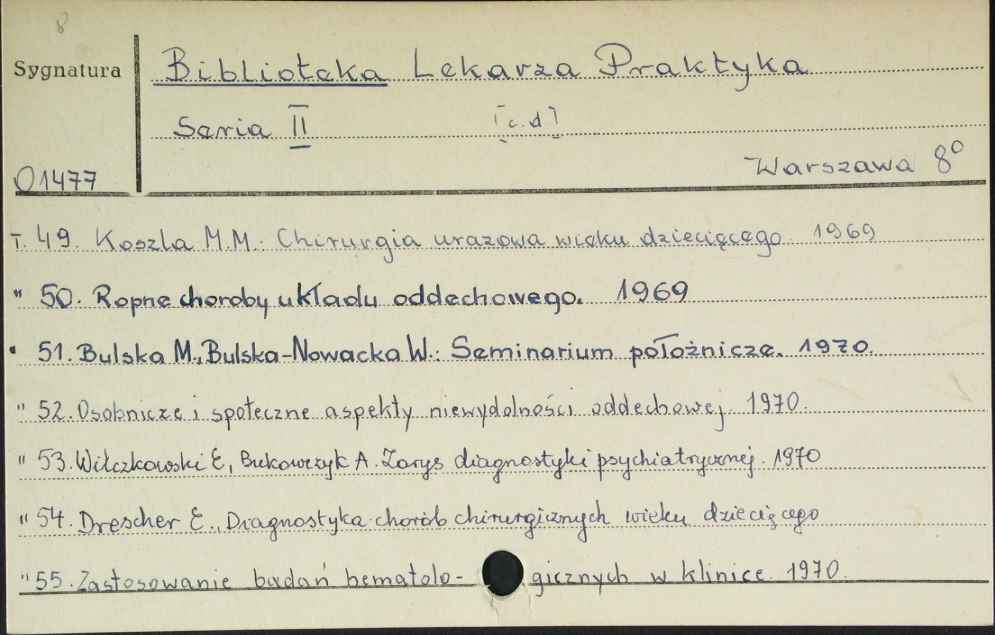 8
Sygnatura Biblioteka Lekarza Praktyka
Seria II [c.d]
O1477 Warszawa 8°
T. 49. Koszla M.M.: Chirurgia urazowa wieku dziecięcego 1969
" 50. Ropne choroby układu oddechowego. 1969
" 51. Bulska M., Bulska-Nowacka W.: Seminarium położnicze. 1970.
" 52. Osobnicze i społeczne aspekty niewydolności oddechowej 1970.
" 53. Wilczkowski E, Bukowczyk A. Zarys diagnostyki psychiatrycznej. 1970
" 54. Drescher E., Diagnostyka chorób chirurgicznych wieku dziecięcego
" 55. Zastosowanie badań hematolo- gicznych w klinice. 1970.